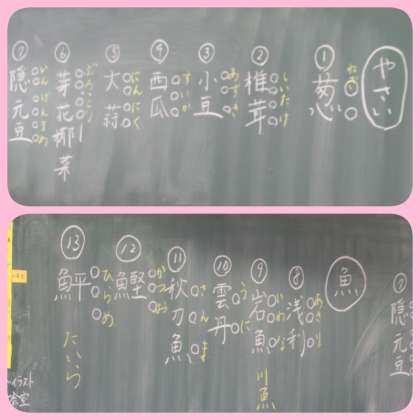 やさい
① 葱
ねぎ
② 椎茸
しいたけ
③ 小豆
あずき
④ 西瓜
すいか
⑤ 大蒜
にんにく
⑥ 芽花椰菜
ぶろっこりー
⑦ 隠元豆
いんげんまめ
⑦ 隠元豆
魚
⑧ 浅利
あさり
⑨ 岩魚
いわな
川魚
⑩ 雲丹
うに
⑪ 秋刀魚
さんま
⑫ 鰹
かつお
⑬ 鮃
ひらめ
たいら
イラスト